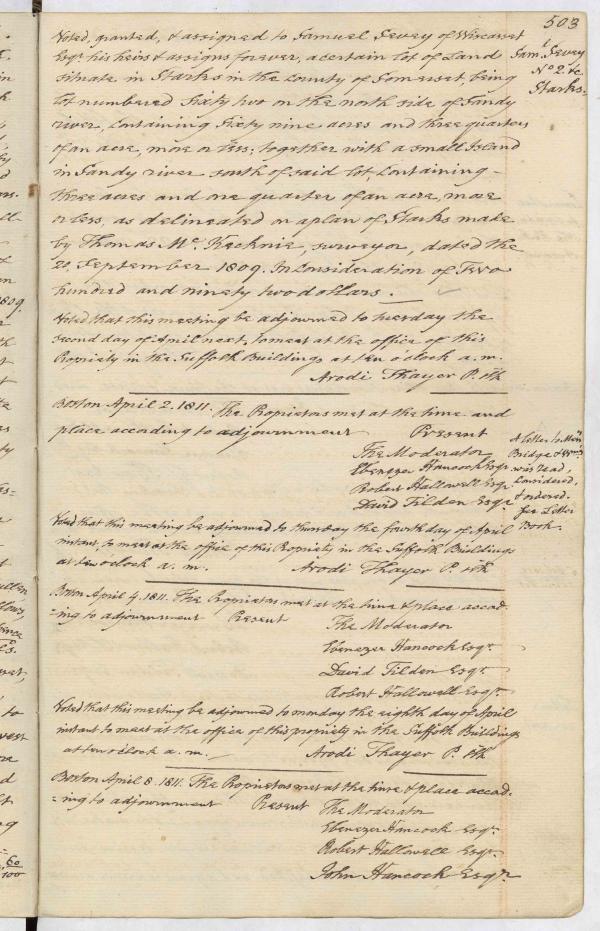 503
Voted, granted, & assigned to Samuel Sevey of Wiscasset
Esqr. his heirs & assigns forever, a certain lot of Land
situate in Starks in the County of Somerset, being
lot numbered Sixty two on the north side of Sandy
river, Containing Sixty nine acres and three quarters
of an acre, more or less; together with a small Island
in Sandy river south of said lot Containing -
three acres and one quarter of an acre, more
or less, as delineated on a plan of Starks made
by Thomas Mc. Kechnie, surveyor, dated the
20, September 1809. In Consideration of Two
hundred and ninety two dollars.
Saml. Sevey
No. 2 &c.
Starks
Voted that this meeting be adjourned to tuesday the
second day of April next, to meet at the office of this
Propriety in the Suffolk Buildings at ten o'clock a. m.
Arodi Thayer P. Clk
Boston April 2. 1811. The Proprietors met at the time and
place according to adjournment Present
The Moderator
Ebenezer Hancock Esqr.
Robert Hallowell Esqr
David Tilden Esqr
A letter to
Bridge &
was read,
Considered,
& ordered.
See Letter
Book
Voted that this meeting be adjourned to thursday the fourth day of April
instant, to meet at the office of this Propriety in the Suffolk Buildings
at ten o'clock a. m. Arodi Thayer P. Clk
Boston April 4. 1811. The Proprietors met at the time & place accord-
=ing to adjournment Present The Moderator
Ebenezer Hancock Esqr.
David Tilden Esqr.
Robert Hallowell Esqr.
Voted that this meeting be adjourned to monday the eighth day of April
instant to meet at the office of this propriety in the Suffolk Buildings
at ten o'clock a. m. Arodi Thayer P. Clk
Boston April 8. 1811. The Proprietors met at the time & place accord-
=ing to adjournment Present The Moderator
Ebenezer Hancock Esqr.
Robert Hallowell Esqr.
John Hancock Esqr.